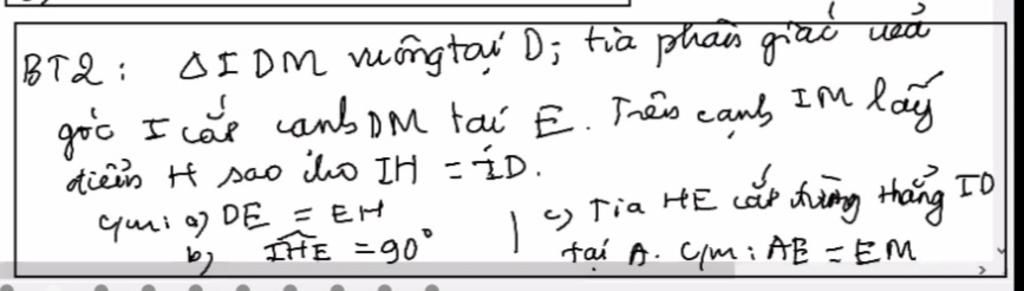 BT2: ΔIDM vuông tại D; tia phân giác của
góc I cắt cạnh DM tại E. Trên cạnh IM lấy
điểm H sao cho IH = ID.
c/m: a) DE = EH
b) \widehat{IHE} = 90°
c) Tia HE cắt đường thẳng ID
tại A. c/m: AE = EM